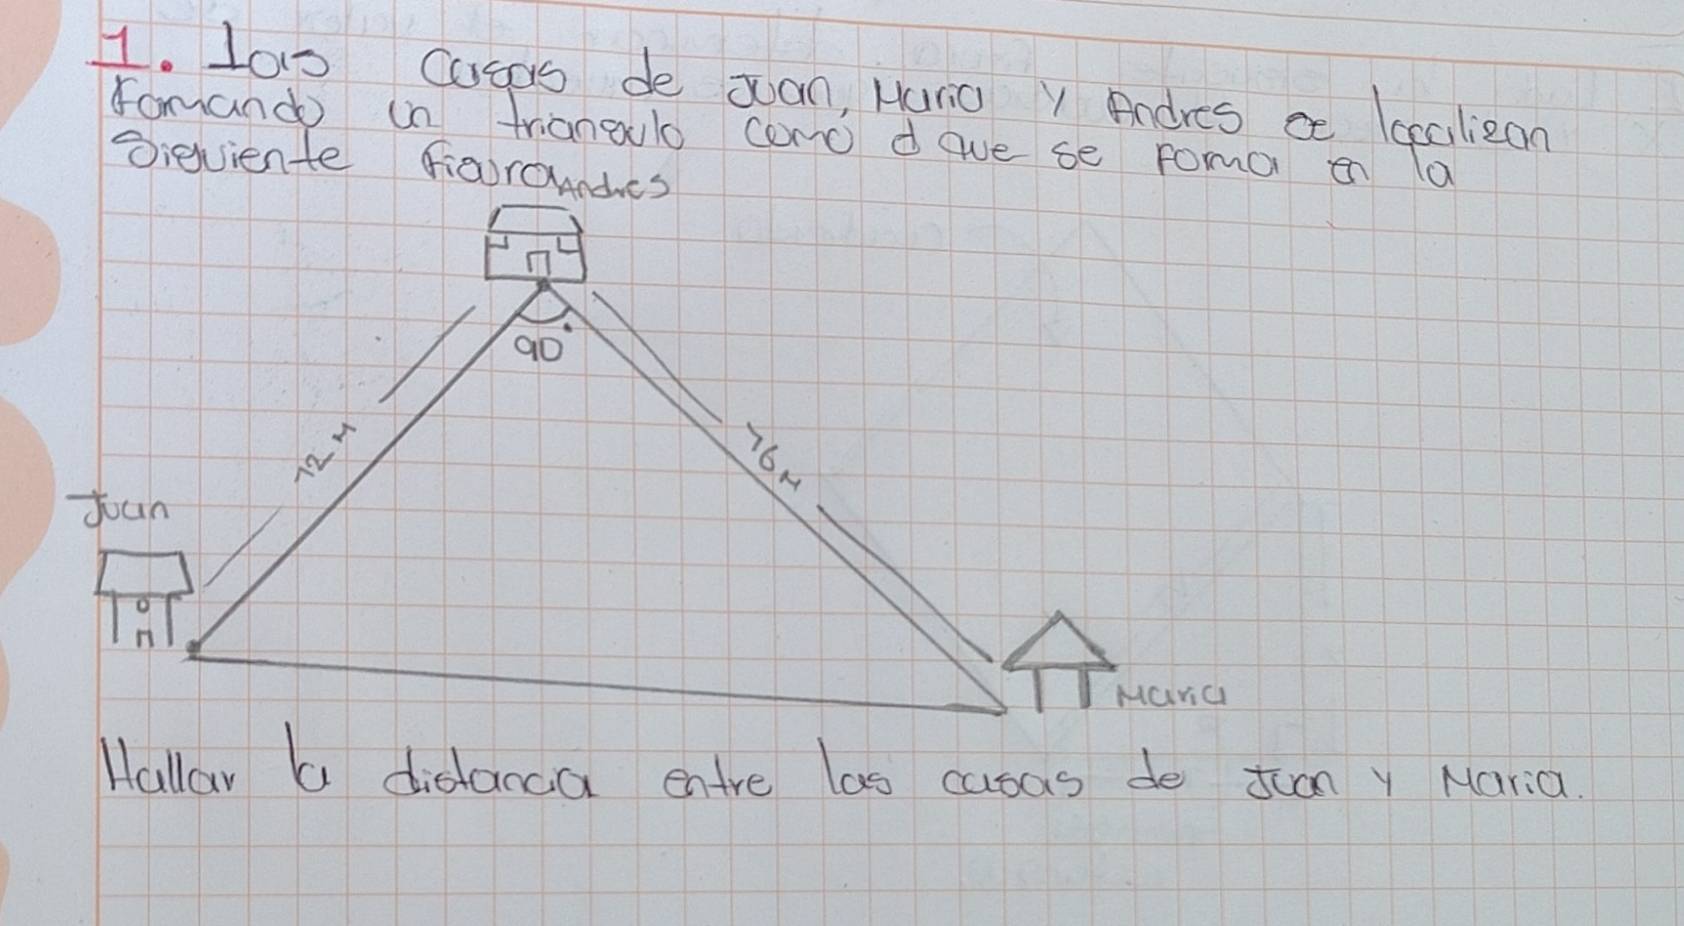 1. las casas de Juan, Maria y Andres se localizan
formando un triangulo como el que se forma en la
siguiente figura
Andres
90°
12 M
16 M
Juan
Maria
Hallar la distancia entre las casas de Juan y Maria.